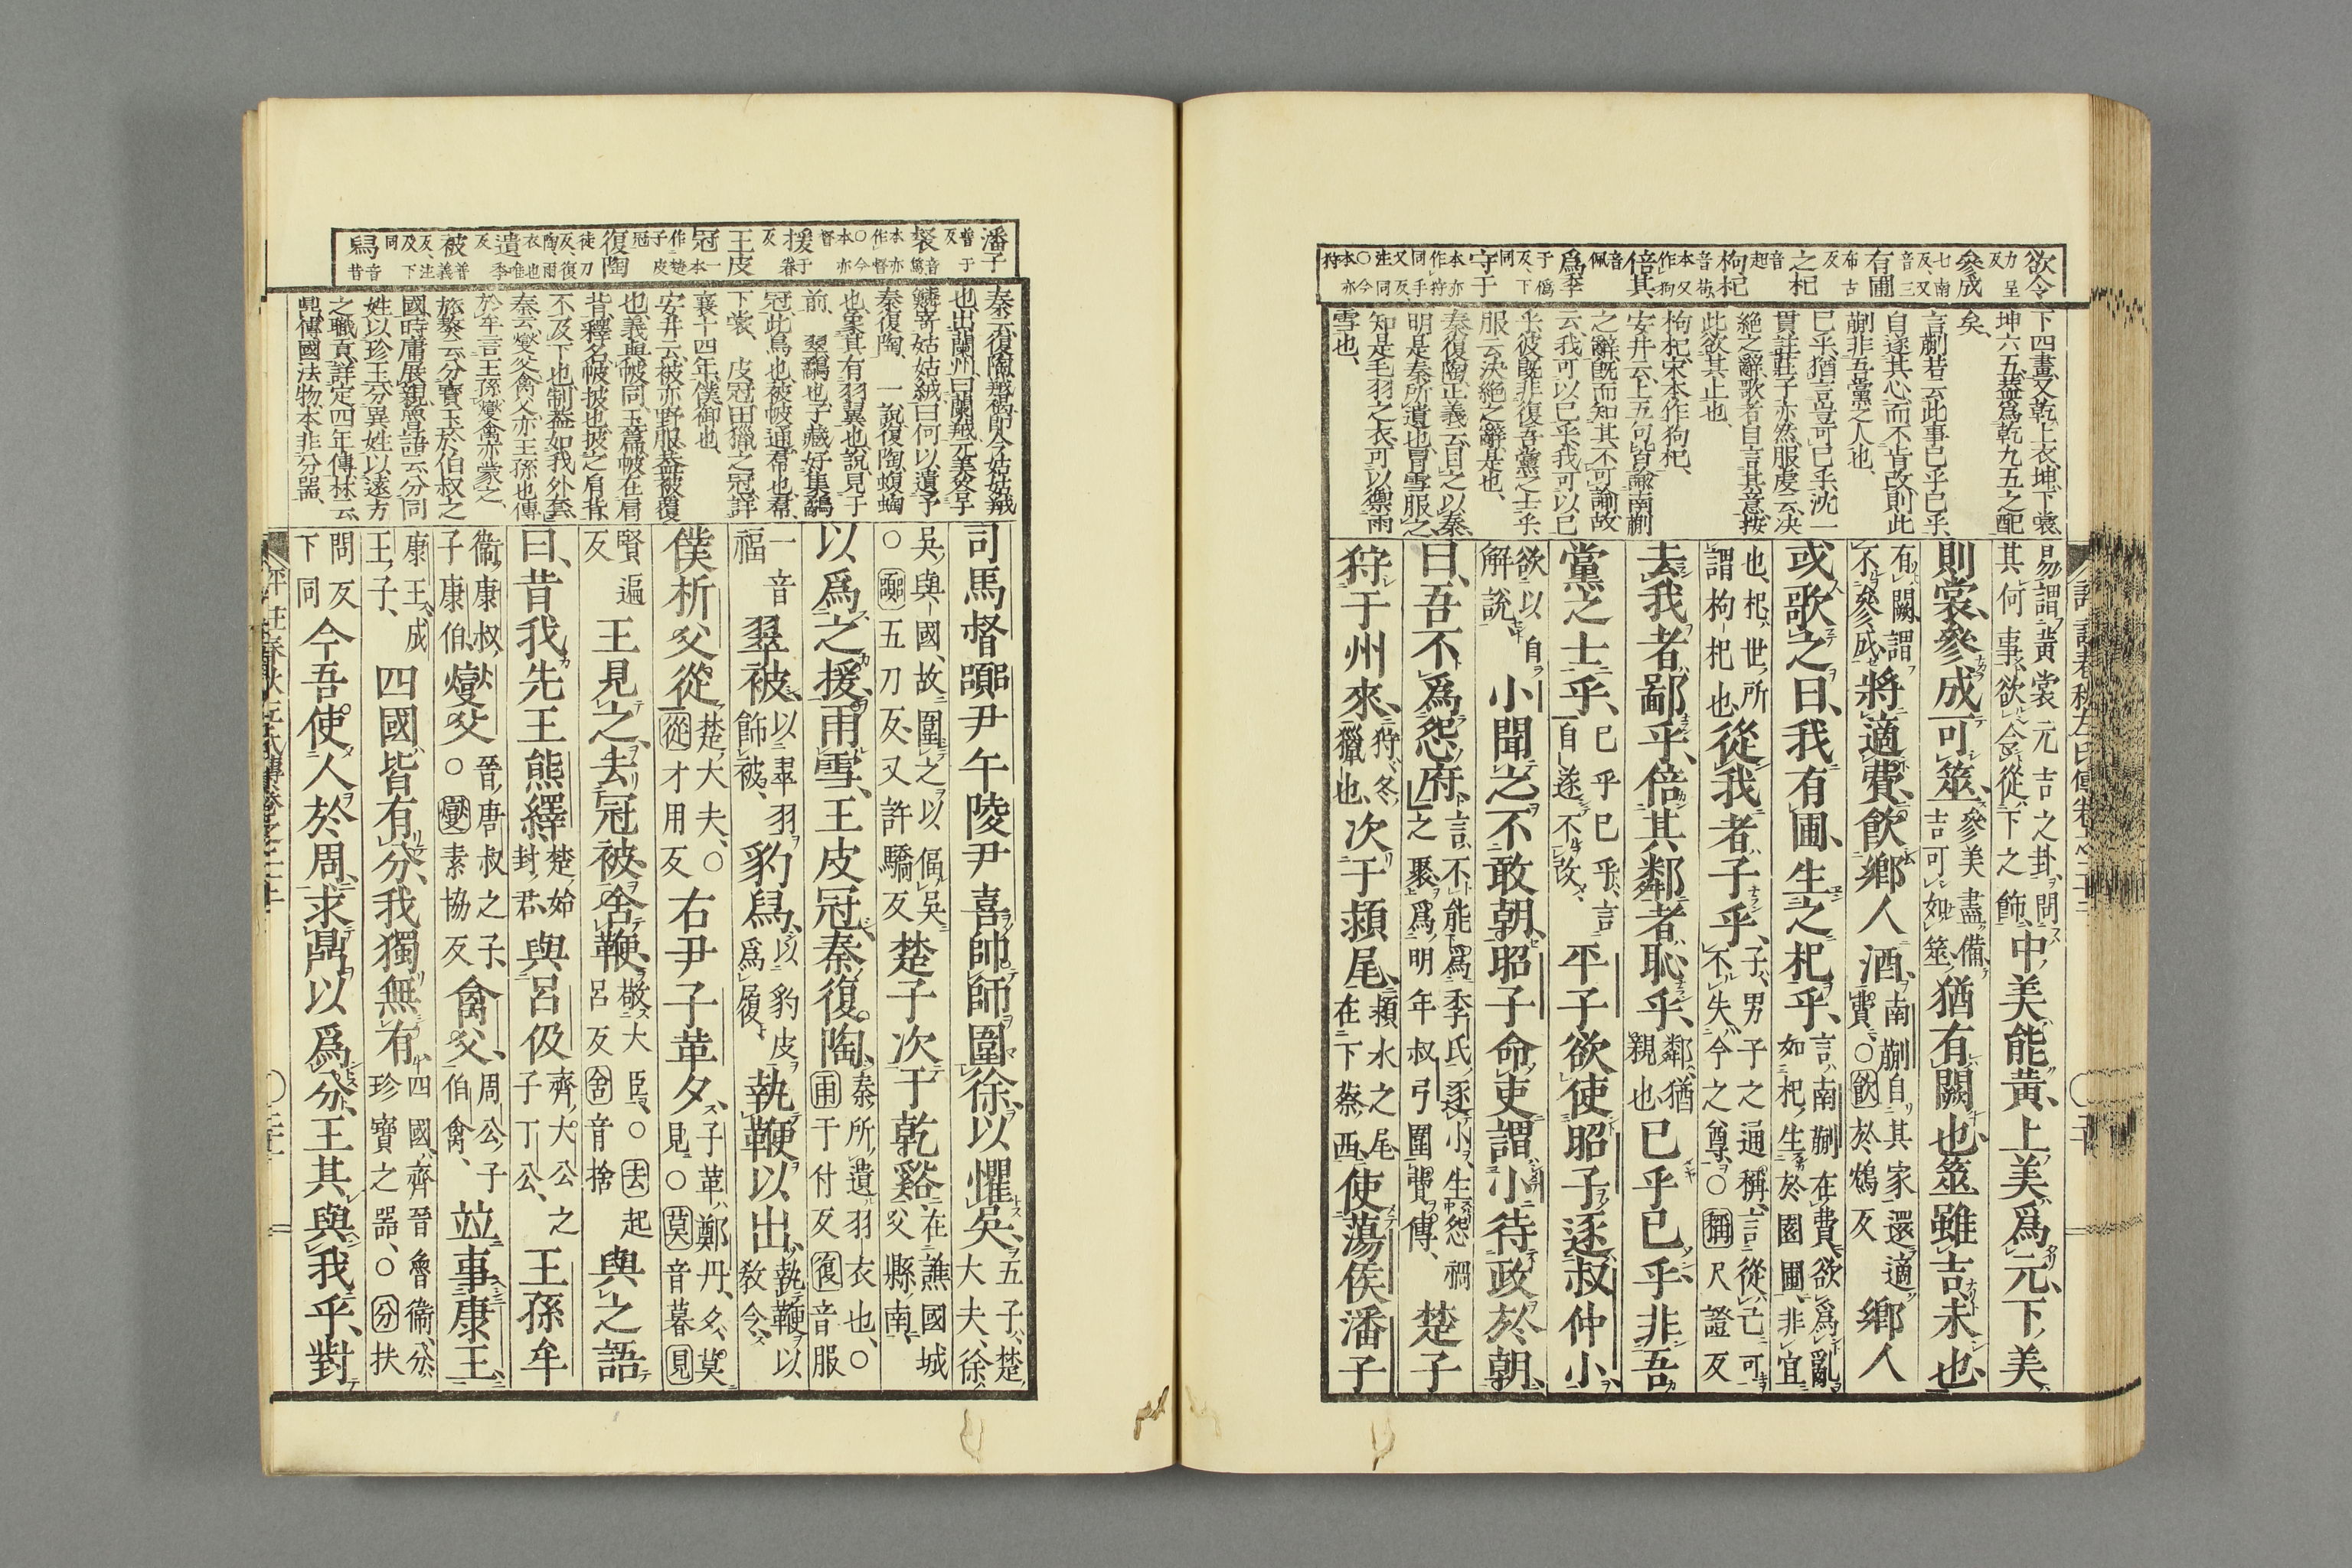 欲令力呈反參成七南反又音三有圃布古反之杞音起枸杞音苟本又作狗倍其音佩為季于偽反下同守于本亦作狩同手又反注同○今本亦狩
下四畫又乾上衣坤下裳
坤六五葢為乾九五之配
矣
言蒯若云此事已乎已乎
自遂其心而不肯改則此
蒯非吾黨之人也
已乎猶言豈可已乎沈一
貫註莊子亦然服虔云決
絕之辭歌者自言其意按
此欲其止也
枸杞宋本作狗杞
安井云上五句皆諭南蒯
之辭既而知其不可諭故
云我可以已乎我可以已
乎彼既非復吾黨之士乎
服云決絕之辭是也
秦復陶正義云目之以秦
明是秦所遺也冒雪服之
知是毛羽之衣可以禦雨
雪也
易謂黃裳元吉之卦問其何事欲令從下之飾中美能黃上美爲元下美
則裳參成可筮參美盡備吉可如筮猶有闕也筮雖吉未也
有闕謂不參成將適費飲鄉人酒南蒯自其家還適費○飲於鴆反鄉人
或歌之曰我有圃生之杞乎言南蒯在費欲爲亂如杞生於園圃非宜
也杞世所謂枸杞也從我者子乎子男子之通稱言從己可不失今之尊○稱尺證反
去我者鄙乎倍其鄰者恥乎鄰猶親也已乎已乎非吾
黨之士乎已乎已乎言自遂不改平子欲使昭子逐叔仲小
欲以自解說小聞之不敢朝昭子命吏謂小待政於朝
曰吾不爲怨府言不能爲季氏逐小生怨禍之聚爲明年叔弓圍費傳楚子
狩于州來狩冬獵也次于潁尾潁水之尾在下蔡西使蕩侯潘子
潘子普于反裻音篤本亦作督○今本亦督援于眷反王皮冠一本作楚子皮冠復陶徒刀反復陶雨衣也遺唯季反被普義反注及下同舄音昔
秦云復陶羢褐即今姑姑羢
也出蘭州曰蘭羢元美癸辛
鱗寄姑姑絨曰何以遺予
秦復陶　一說復陶蝮蜪
也象其有羽翼也說見于
前　翠鷸也子臧好集鷸
冠此鳥也被帔通帬也帬
下裳　皮冠田獵之冠詳
襄十四年僕御也
安井云被亦野服葢被覆
也義與帔同玉篇帔在肩
背釋名帔披也披之肩背
不及下也制葢如我外套
秦云燮父禽父亦王孫也傳
於牟言王孫燮禽亦蒙之
旅獒云分寶玉於伯叔之
國時庸展親魯語云分同
姓以珍玉分異姓以遠方
之職貢詳定四年傳林云
鼎傳國法物本非分器
司馬督嚻尹午陵尹喜帥師圍徐以懼吳五子楚大夫徐
吳與國故圍之以偪吳○嚻五刀反又許驕反楚子次于乾谿在譙國城父縣南
以爲之援雨雪王皮冠秦復陶秦所遺羽衣也○雨于付反復音服
一音福翠被以翠羽飾被豹舄以豹皮爲履執鞭以出執鞭以教令
僕析父從楚大夫○從才用反右尹子革夕子革鄭丹夕莫見○莫音暮見
賢遍反王見之去冠被舍鞭敬大臣○去起呂反舍音捨與之語
曰昔我先王熊繹楚始封君與呂伋齊大公之子丁公王孫牟
衞康叔子康伯燮父晉唐叔之子○燮素協反禽父周公子伯禽竝事康王
康王成王子四國皆有分我獨無有四國齊晉魯衞分珍寶之器○分扶
問反下同今吾使人於周求鼎以爲分王其與我乎對